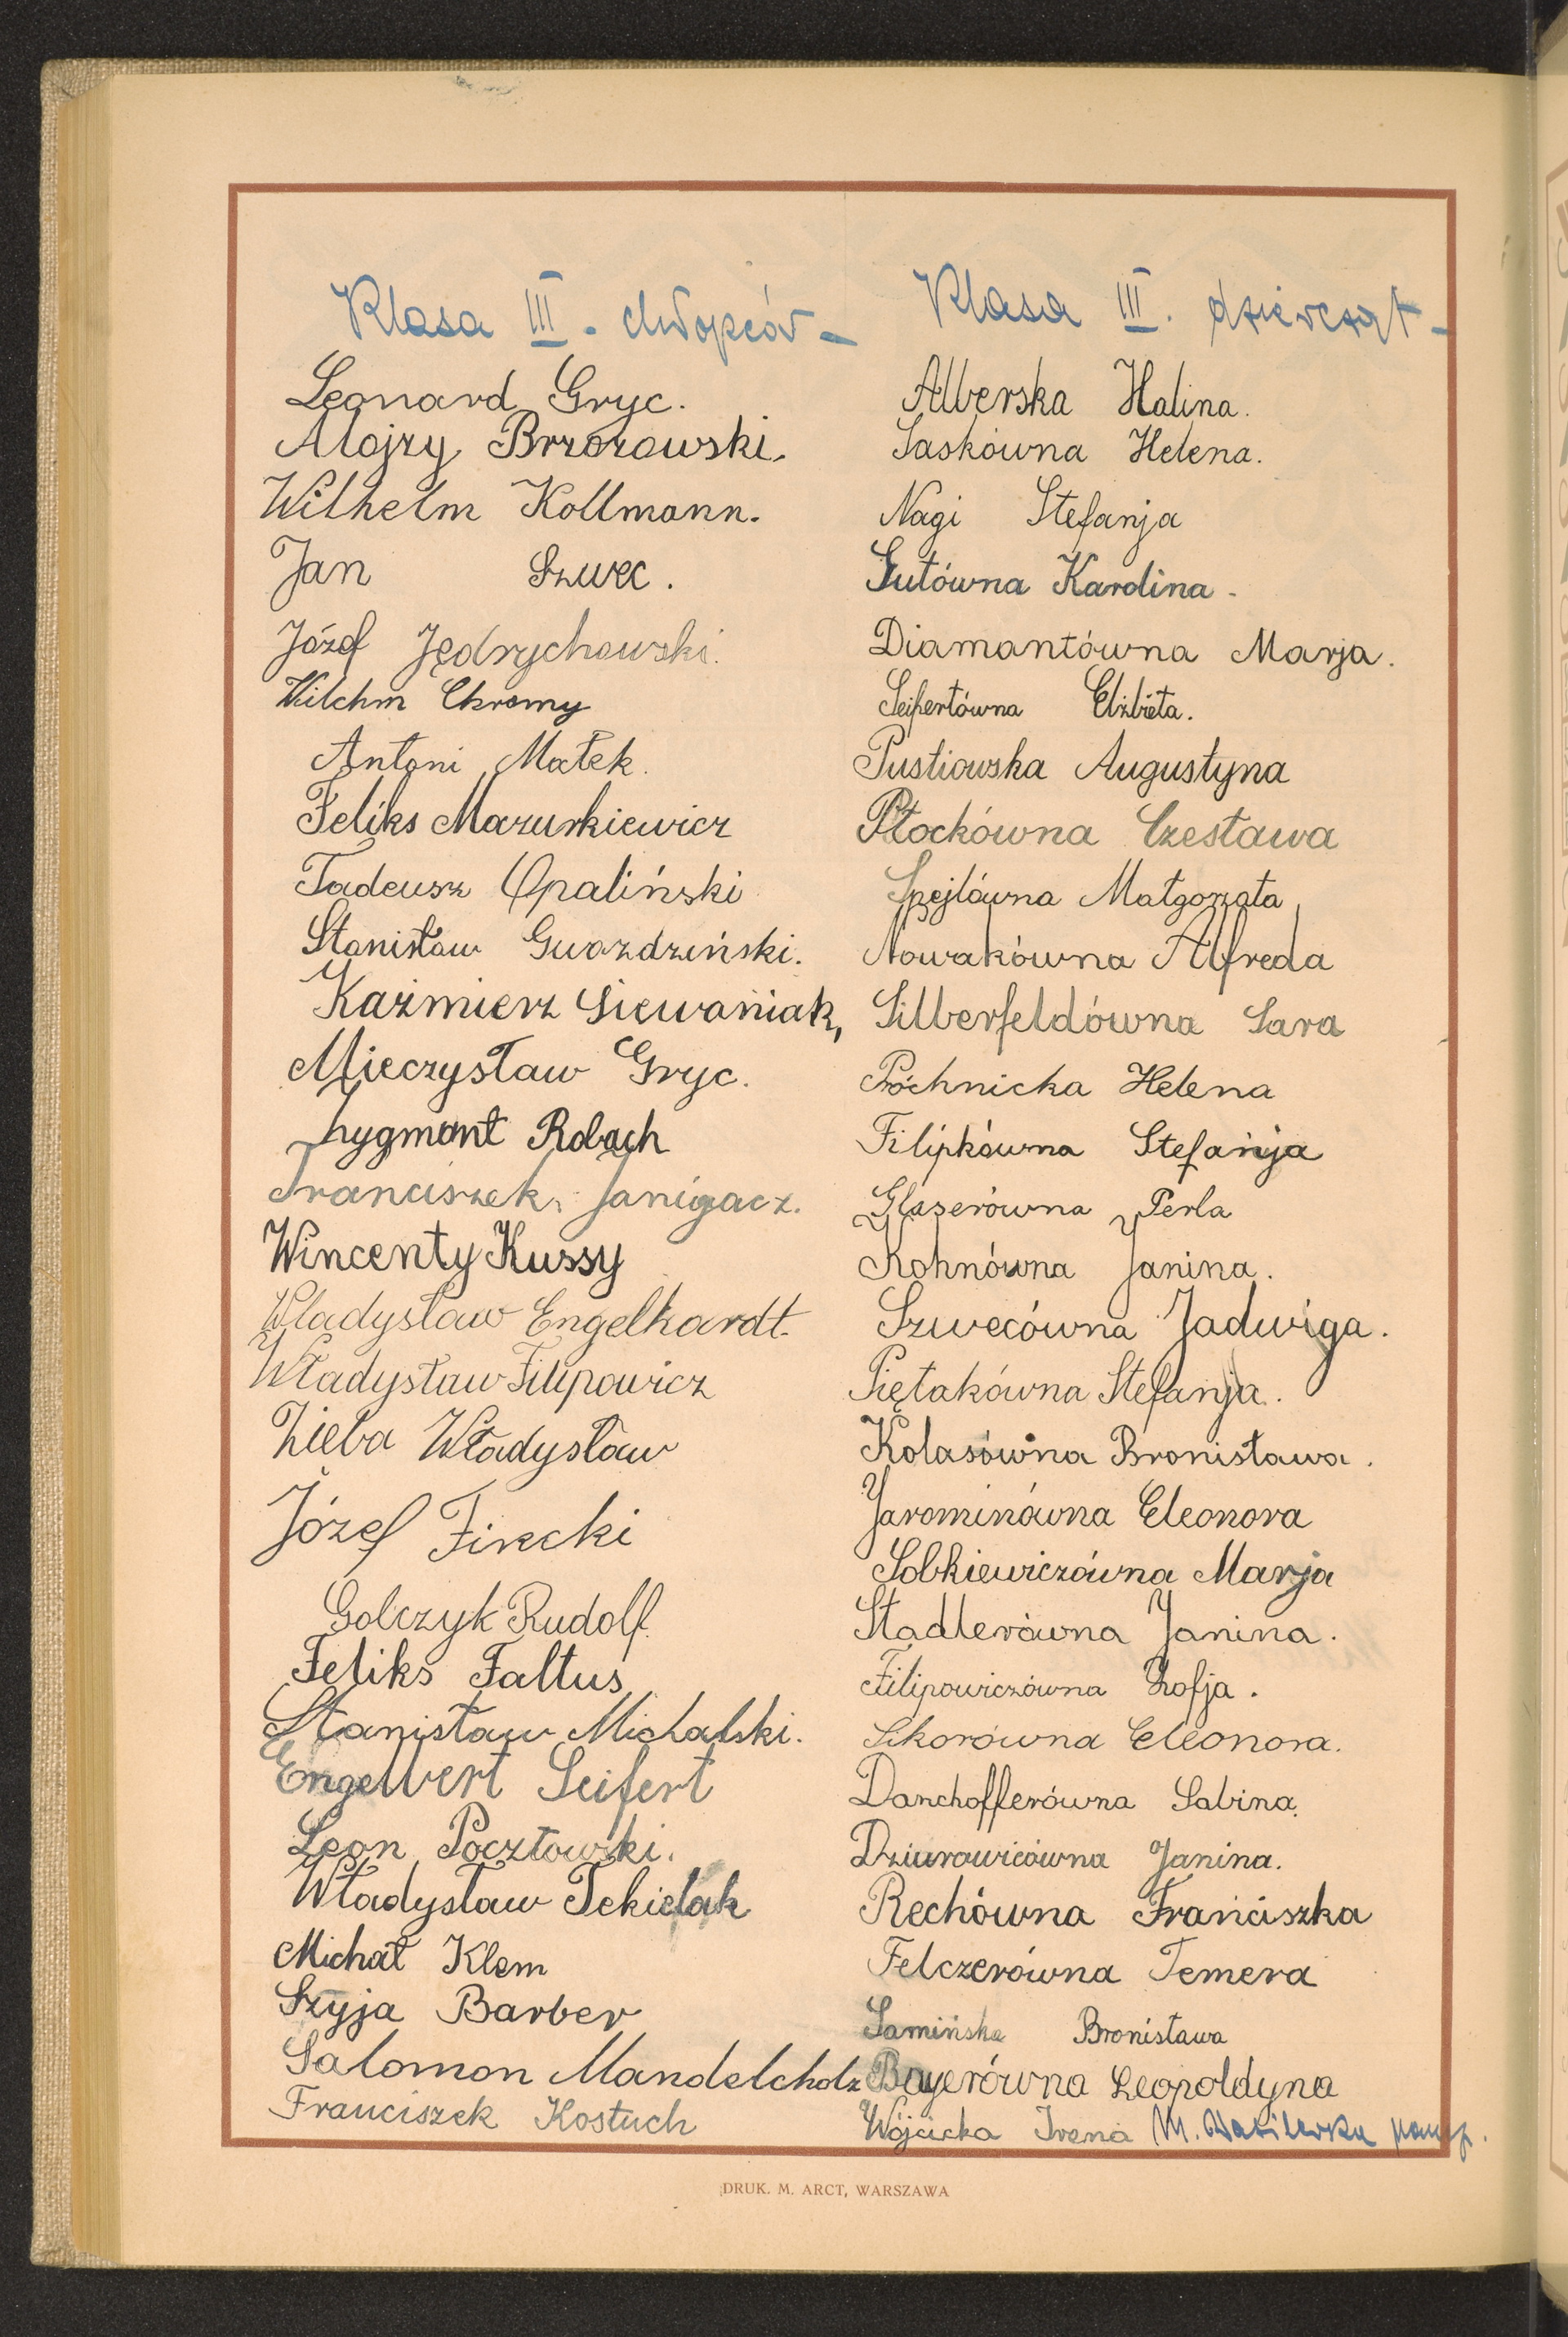 Klasa III - chłopców -
Leonard Gryc.
Alojzy Brzozowski.
Wilhelm Kollmann.
Jan Szwec.
Józef Jędrychowski.
Wilchm Chromy
Antoni Małek.
Feliks Mazurkiewicz
Tadeusz Opaliński
Stanisław Gwoździński.
Kaźmierz Siewaniak,
Mieczysław Gryc.
Zygmont Robach
Franciszek Janigacz.
Wincenty Kussy
Władysław Engelhardt.
Władysław Filipowicz
Zięba Władysław
Józef Firecki
Golczyk Rudolf
Feliks Faltus
Stanisław Michalski.
Engelbert Seifert
Leon Pocztowski.
Władysław Tekielak
Michał Klem
Szyja Barber
Salomon Mandelcholz
Franciszek Kostuch
Klasa III. dziewcząt -
Alberska Halina.
Saskówna Helena.
Nagi Stefanja
Gutówna Karolina -
Diamantówna Marja.
Seifertówna Elżbieta.
Pustiowska Augustyna
Płockówna Czesława
Szpejlówna Małgorzata
Nowakówna Alfreda
Silberfeldówna Sara
Próchnicka Helena
Filipkówna Stefanja
Glaserówna Perla
Kohnówna Janina.
Szwecówna Jadwiga.
Piętakówna Stefanja.
Kolasówna Bronisława.
Jarominówna Eleonora
Sobkiewiczówna Marja
Stadlerówna Janina.
Filipowiczówna Zofja.
Sikorówna Eleonora.
Danchofferówna Sabina.
Dziurowicówna Janina.
Rechówna Franciszka
Felczerówna Temera
Samińska Bronisława
Bayerówna Leopoldyna
Wójcicka Irena M. Wasilewska
DRUK. M. ARCT, WARSZAWA